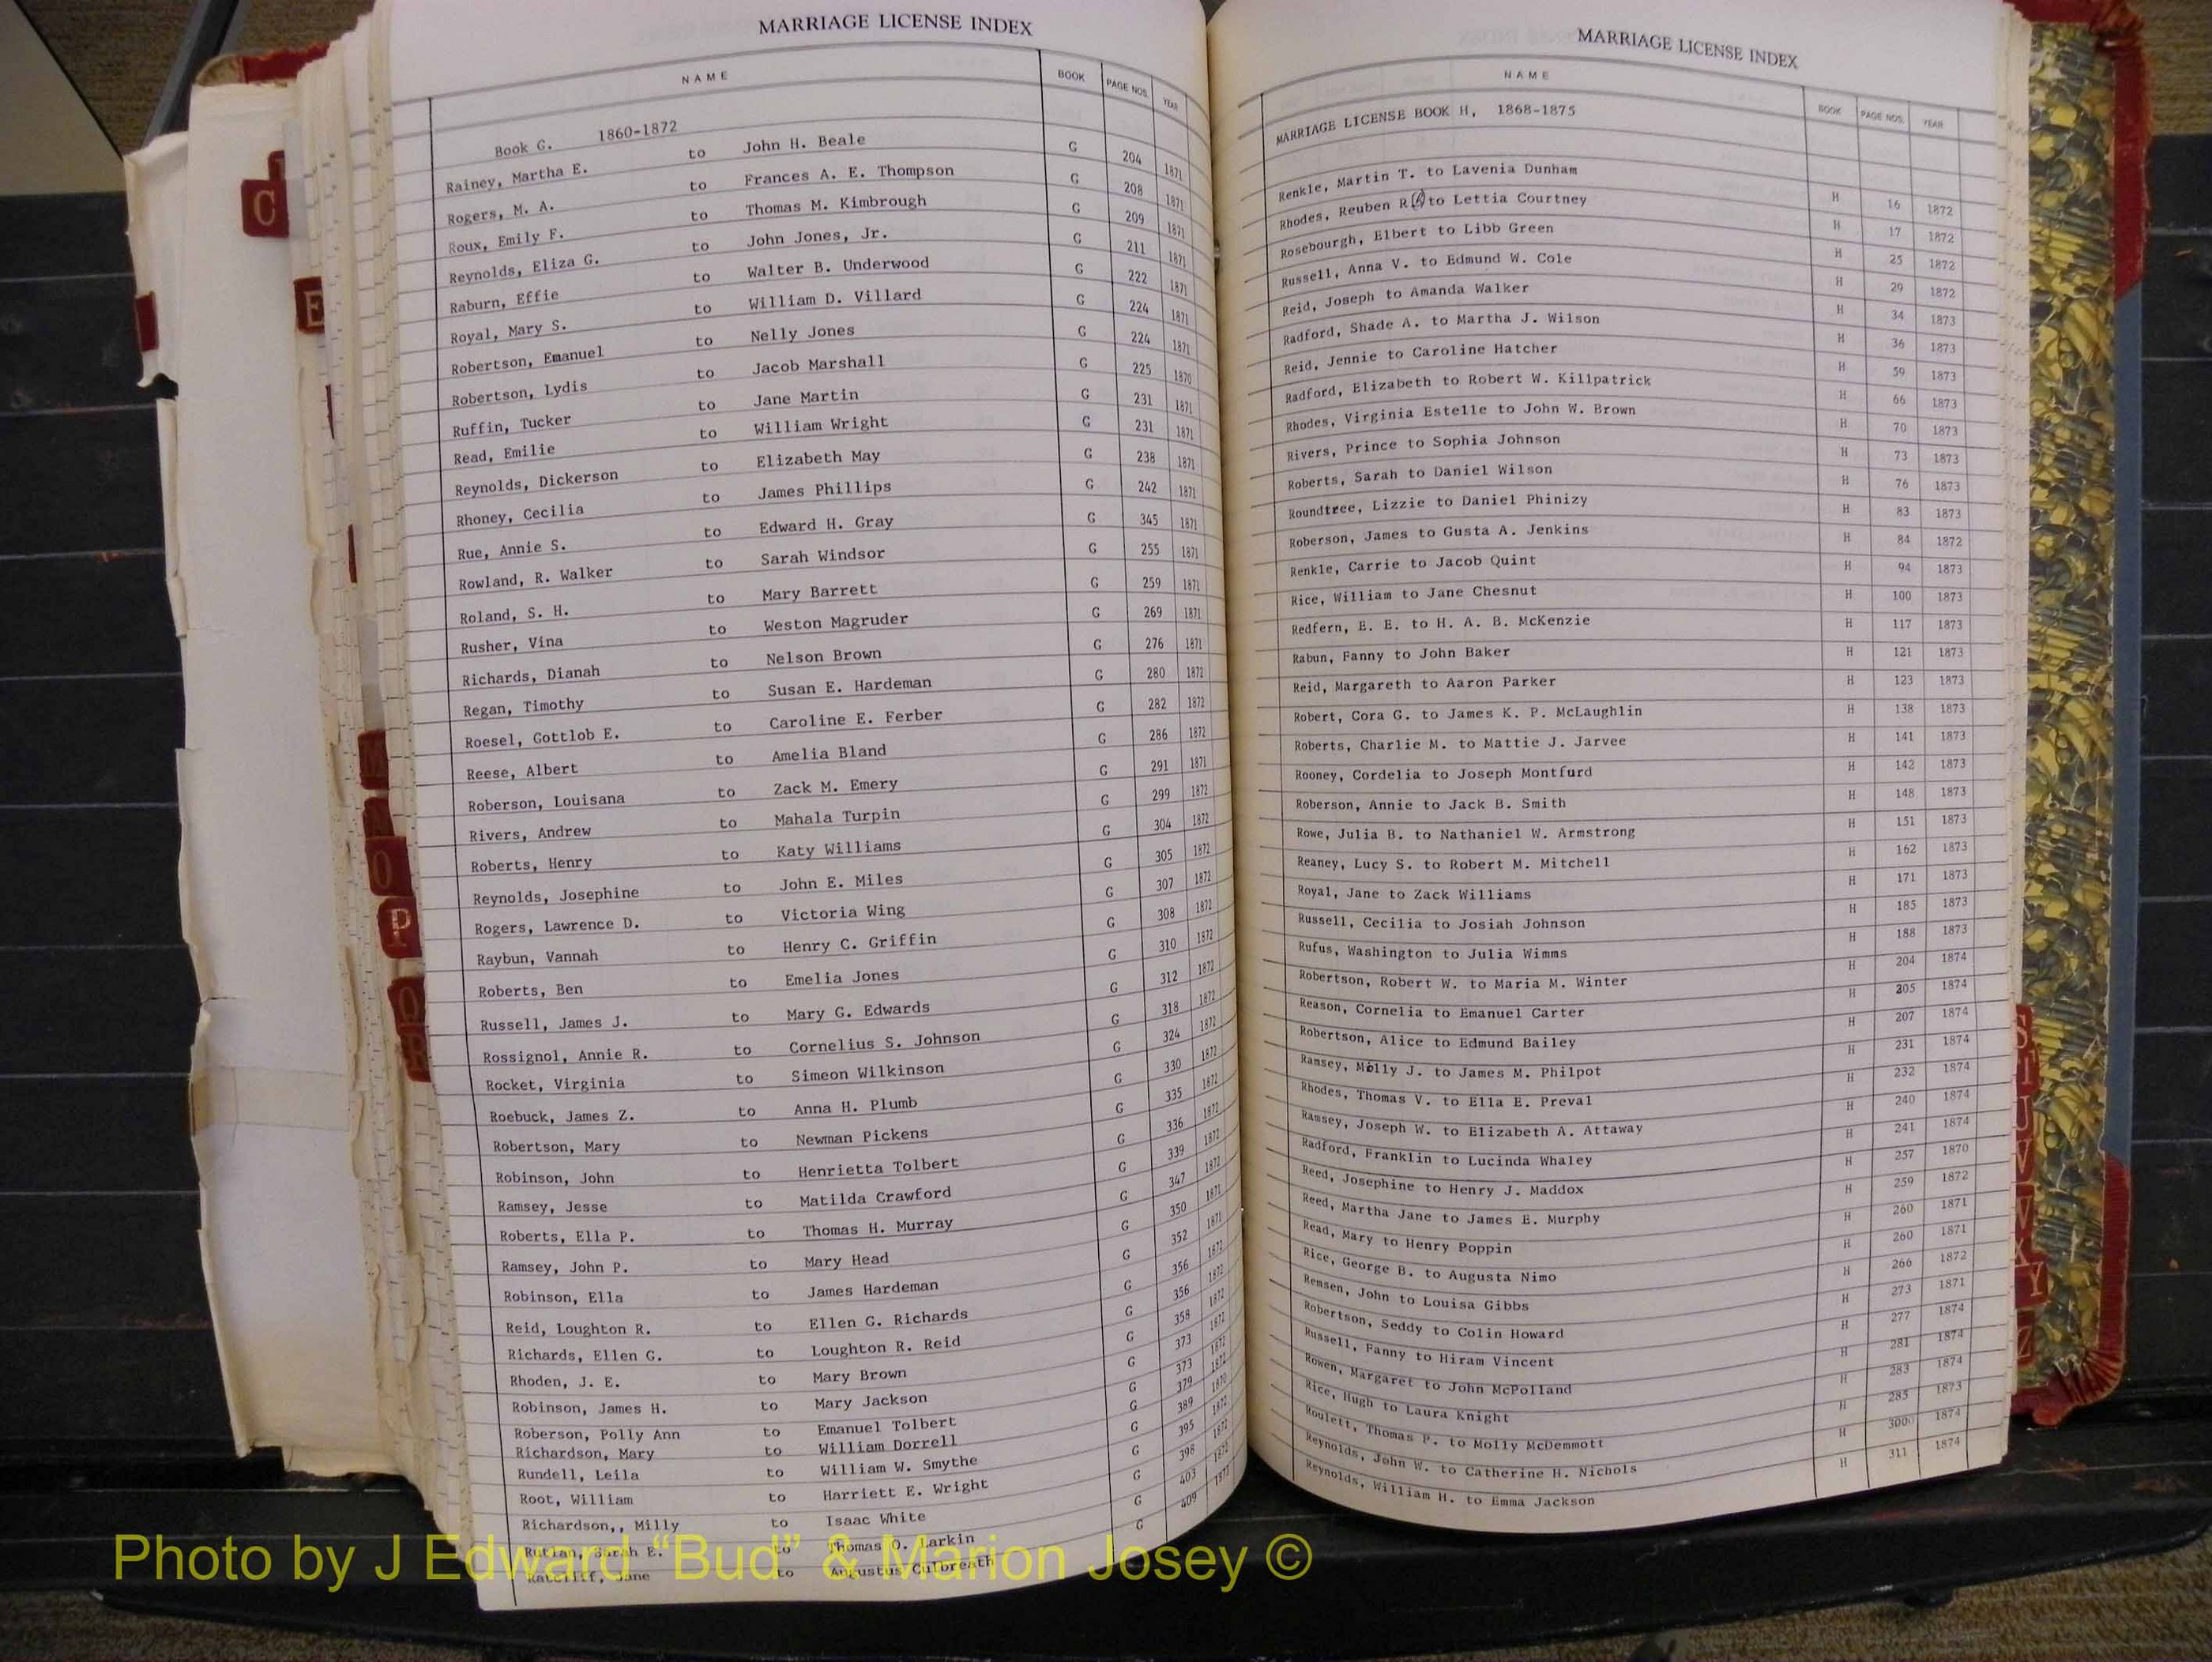 MARRIAGE LICENSE INDEX
NAME BOOK PAGE NOS. YEAR
Book G. 1860-1872
Rainey, Martha E. to John H. Beale G 204 1871
Rogers, M. A. to Frances A. E. Thompson G 208 1871
Roux, Emily F. to Thomas M. Kimbrough G 209 1871
Reynolds, Eliza G. to John Jones, Jr. G 211 1871
Raburn, Effie to Walter B. Underwood G 222 1871
Royal, Mary S. to William D. Villard G 224 1871
Robertson, Emanuel to Nelly Jones G 224 1871
Robertson, Lydis to Jacob Marshall G 225 1870
Ruffin, Tucker to Jane Martin G 231 1871
Read, Emilie to William Wright G 231 1871
Reynolds, Dickerson to Elizabeth May G 238 1871
Rhoney, Cecilia to James Phillips G 242 1871
Rue, Annie S. to Edward H. Gray G 345 1871
Rowland, R. Walker to Sarah Windsor G 255 1871
Roland, S. H. to Mary Barrett G 259 1871
Rusher, Vina to Weston Magruder G 269 1871
Richards, Dianah to Nelson Brown G 276 1871
Regan, Timothy to Susan E. Hardeman G 280 1872
Roesel, Gottlob E. to Caroline E. Ferber G 282 1872
Reese, Albert to Amelia Bland G 286 1872
Roberson, Louisana to Zack M. Emery G 291 1871
Rivers, Andrew to Mahala Turpin G 299 1872
Roberts, Henry to Katy Williams G 304 1872
Reynolds, Josephine to John E. Miles G 305 1872
Rogers, Lawrence D. to Victoria Wing G 307 1872
Raybun, Vannah to Henry C. Griffin G 308 1872
Roberts, Ben to Emelia Jones G 310 1872
Russell, James J. to Mary G. Edwards G 312 1872
Rossignol, Annie R. to Cornelius S. Johnson G 318 1872
Rocket, Virginia to Simeon Wilkinson G 324 1872
Roebuck, James Z. to Anna H. Plumb G 330 1872
Robertson, Mary to Newman Pickens G 335 1872
Robinson, John to Henrietta Tolbert G 336 1872
Ramsey, Jesse to Matilda Crawford G 339 1872
Roberts, Ella P. to Thomas H. Murray G 347 1872
Ramsey, John P. to Mary Head G 350 1871
Robinson, Ella to James Hardeman G 352 1871
Reid, Loughton R. to Ellen G. Richards G 356 1872
Richards, Ellen G. to Loughton R. Reid G 356 1872
Rhoden, J. E. to Mary Brown G 358 1872
Robinson, James H. to Mary Jackson G 373 1872
Roberson, Polly Ann to Emanuel Tolbert G 373 1872
Richardson, Mary to William Dorrell G 379 1870
Rundell, Leila to William W. Smythe G 389 1872
Root, William to Harriett E. Wright G 395 1872
Richardson,, Milly to Isaac White G 398 1872
Sarah E. to Thomas O. Larkin G 403
Ratcliff, Jane to Augustus Culbreath G 409
MARRIAGE LICENSE INDEX
NAME BOOK PAGE NOS. YEAR
MARRIAGE LICENSE BOOK H, 1868-1875
Renkle, Martin T. to Lavenia Dunham H 16 1872
Rhodes, Reuben R. to Lettia Courtney H 17 1872
Rosebourgh, Elbert to Libb Green H 25 1872
Russell, Anna V. to Edmund W. Cole H 29 1872
Reid, Joseph to Amanda Walker H 34 1873
Radford, Shade A. to Martha J. Wilson H 36 1873
Reid, Jennie to Caroline Hatcher H 59 1873
Radford, Elizabeth to Robert W. Killpatrick H 66 1873
Rhodes, Virginia Estelle to John W. Brown H 70 1873
Rivers, Prince to Sophia Johnson H 73 1873
Roberts, Sarah to Daniel Wilson H 76 1873
Roundtree, Lizzie to Daniel Phinizy H 83 1873
Roberson, James to Gusta A. Jenkins H 84 1872
Renkle, Carrie to Jacob Quint H 94 1873
Rice, William to Jane Chesnut H 100 1873
Redfern, E. E. to H. A. B. McKenzie H 117 1873
Rabun, Fanny to John Baker H 121 1873
Reid, Margareth to Aaron Parker H 123 1873
Robert, Cora G. to James K. P. McLaughlin H 138 1873
Roberts, Charlie M. to Mattie J. Jarvee H 141 1873
Rooney, Cordelia to Joseph Montfurd H 142 1873
Roberson, Annie to Jack B. Smith H 148 1873
Rowe, Julia B. to Nathaniel W. Armstrong H 151 1873
Reaney, Lucy S. to Robert M. Mitchell H 162 1873
Royal, Jane to Zack Williams H 171 1873
Russell, Cecilia to Josiah Johnson H 185 1873
Rufus, Washington to Julia Wimms H 188 1873
Robertson, Robert W. to Maria M. Winter H 204 1874
Reason, Cornelia to Emanuel Carter H 205 1874
Robertson, Alice to Edmund Bailey H 207 1874
Ramsey, Molly J. to James M. Philpot H 231 1874
Rhodes, Thomas V. to Ella E. Preval H 232 1874
Ramsey, Joseph W. to Elizabeth A. Attaway H 240 1874
Radford, Franklin to Lucinda Whaley H 241 1874
Reed, Josephine to Henry J. Maddox H 257 1870
Reed, Martha Jane to James E. Murphy H 259 1872
Read, Mary to Henry Poppin H 260 1871
Rice, George B. to Augusta Nimo H 260 1871
Remsen, John to Louisa Gibbs H 266 1872
Robertson, Seddy to Colin Howard H 273 1871
Russell, Fanny to Hiram Vincent H 277 1874
Rowen, Margaret to John McPolland H 281 1874
Rice, Hugh to Laura Knight H 283 1874
Roulett, Thomas P. to Molly McDemmott H 285 1873
Reynolds, John W. to Catherine H. Nichols H 300 1874
Reynolds, William H. to Emma Jackson H 311 1874
C
E
M
O
P
Q
R
S
U
V
W
X
Y
Z
Photo by J Edward “Bud” & Marion Josey ©